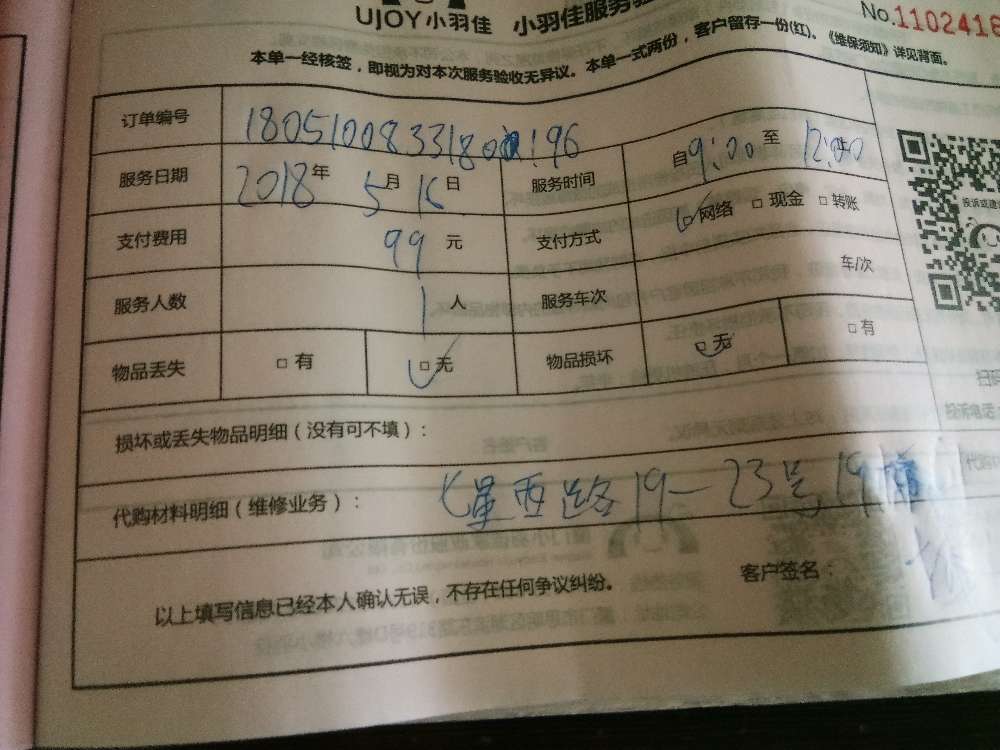 UJOY小羽佳 小羽佳服务验
No.1102416
本单一经核签，即视为对本次服务验收无异议。本单一式两份，客户留存一份(红)。《维保须知》详见背面。
订单编号 1805100833180 196
服务日期 2018年 5月 16日 服务时间 自9:00至 12:00
支付费用 99元 支付方式 □网络 □现金 □转账
服务人数 1人 服务车次 车/次
物品丢失 □有 □无 物品损坏 □无 □有
损坏或丢失物品明细（没有可不填）：
代购材料明细（维修业务）： 七星西路19-23号,19
客户签名：
以上填写信息已经本人确认无误，不存在任何争议纠纷。
投诉或建